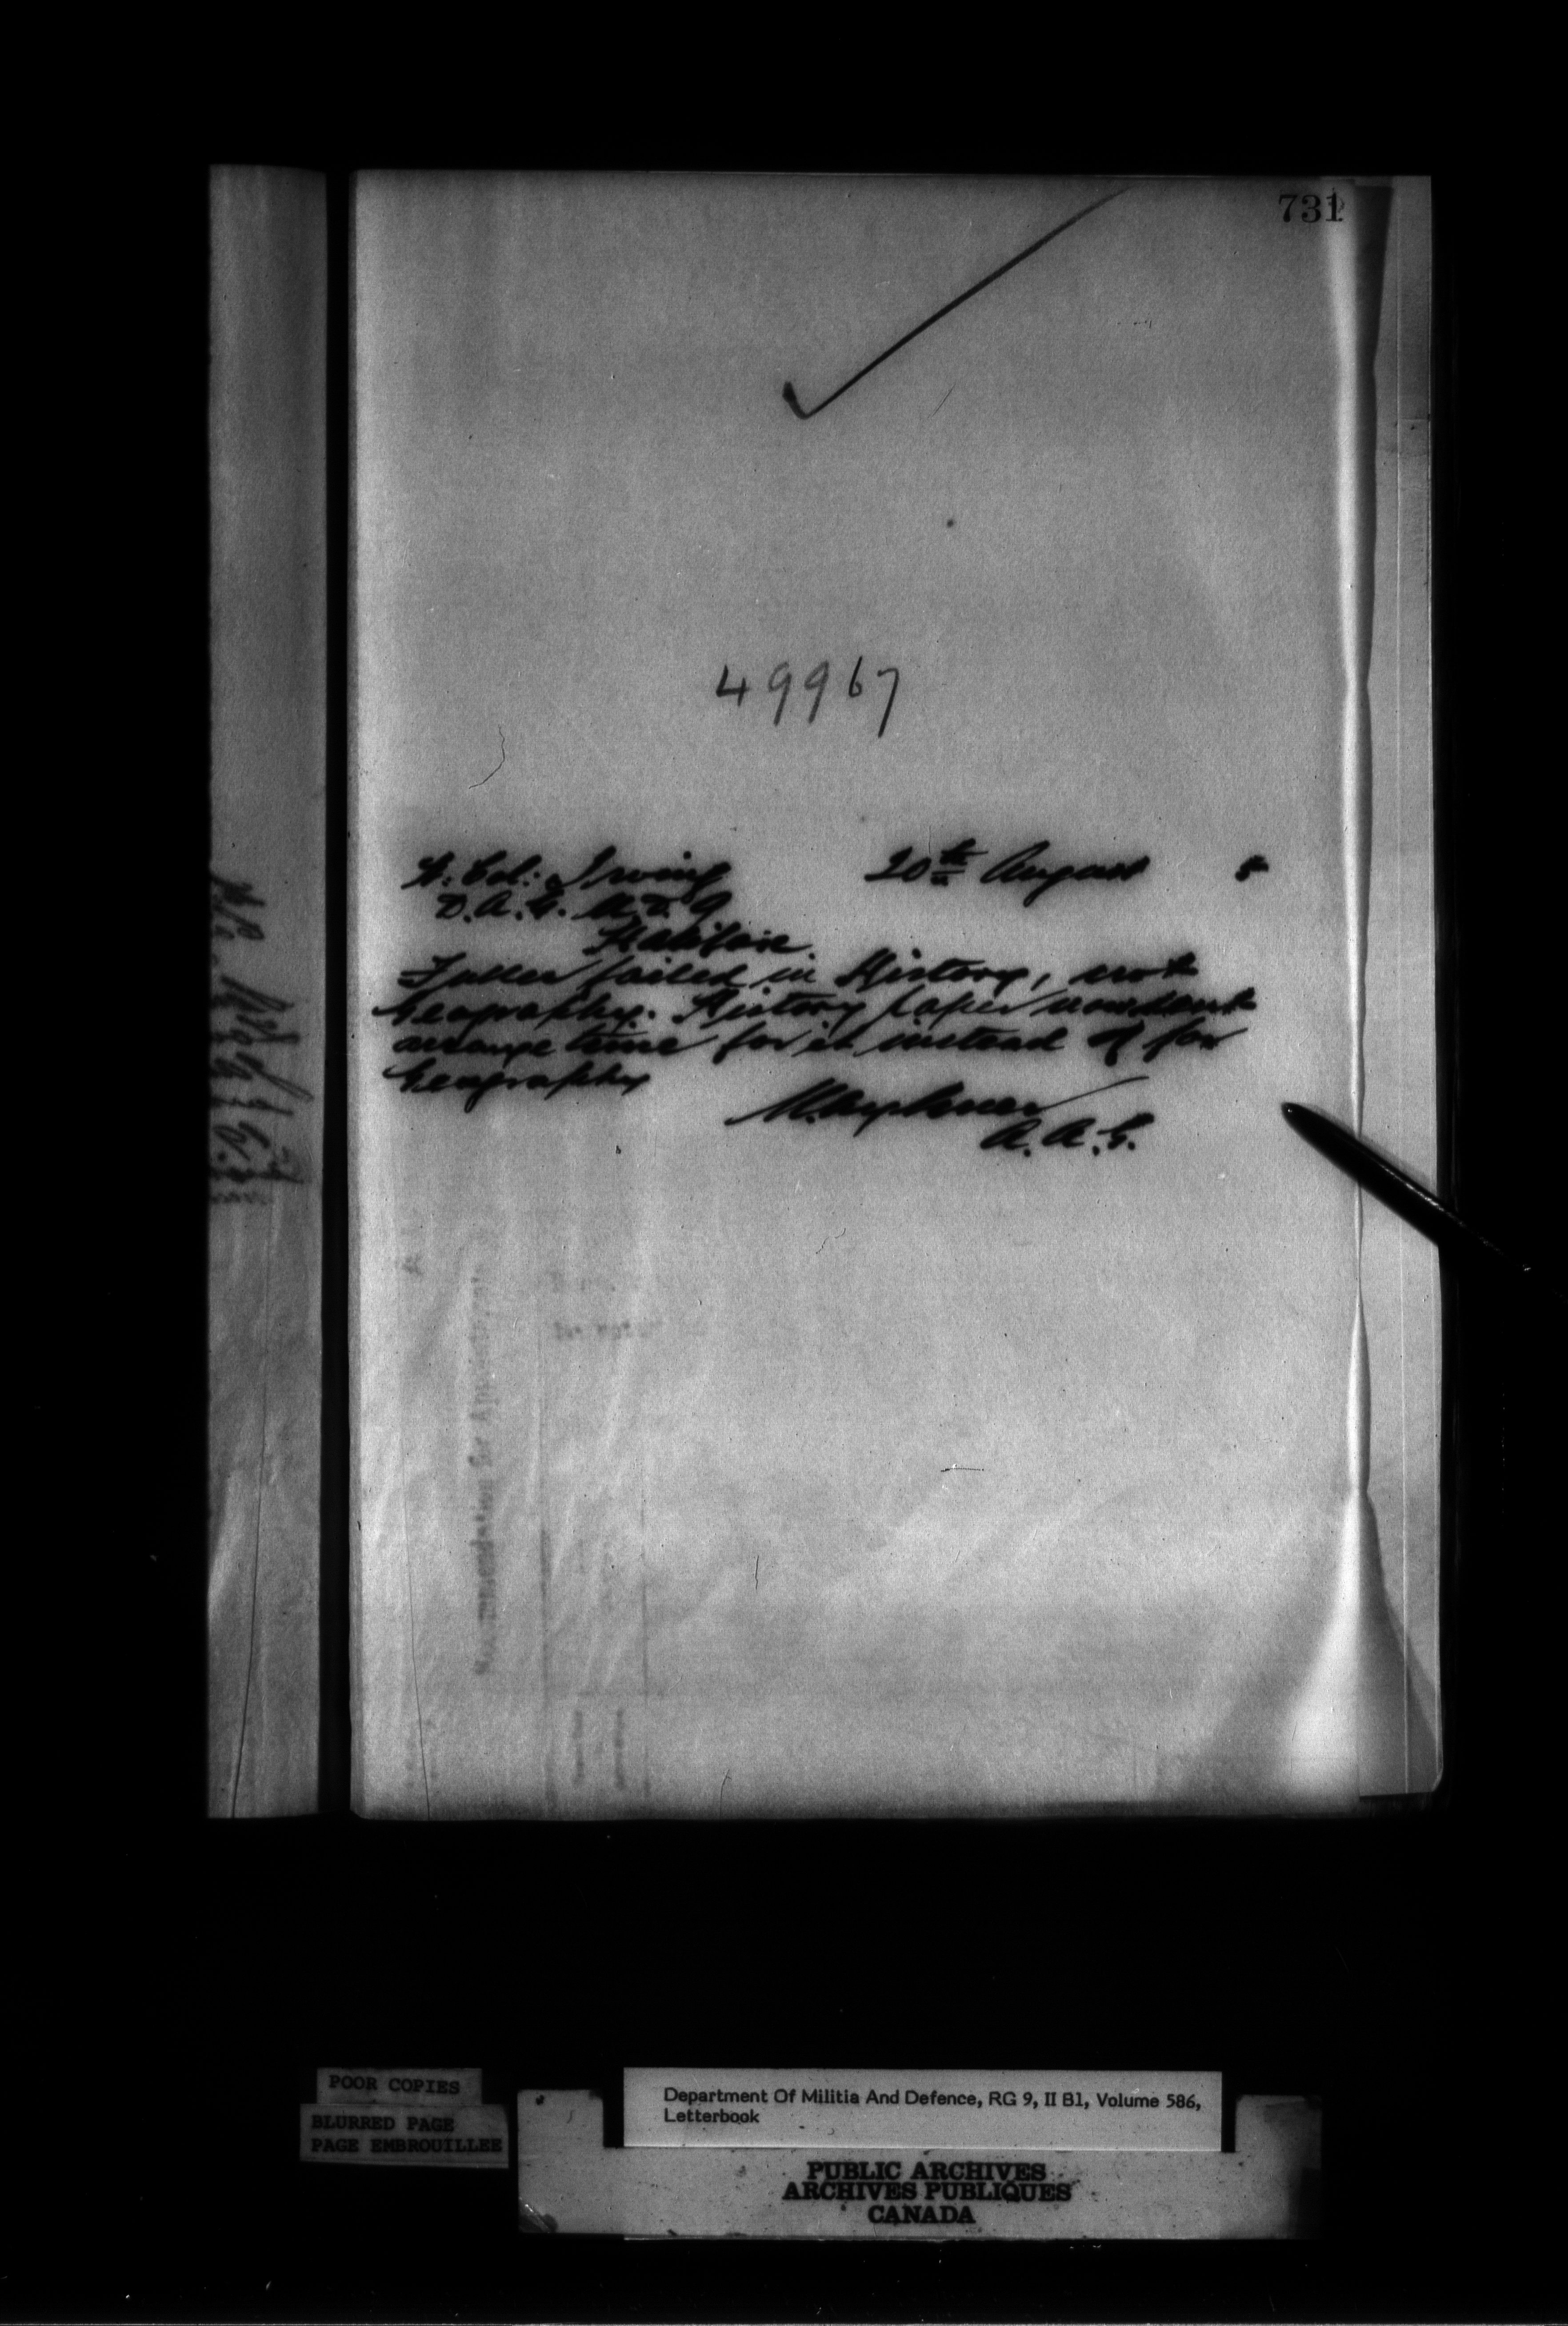 731
49967
Lt. Col: Irving 20th August 8
D.A.G. M.D. 9
Halifax.
Fuller failed in History, not
Geography. History paper now sent
arrange time for it instead of for
Geography
A.A.G.
POOR COPIES
BLURRED PAGE
PAGE EMBROUILLEE
Department Of Militia And Defence, RG 9, II B1, Volume 586,
Letterbook
PUBLIC ARCHIVES
ARCHIVES PUBLIQUES
CANADA